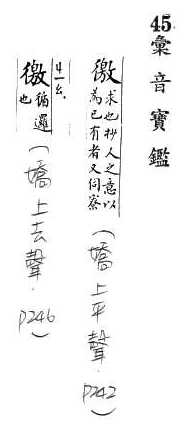 45.彙音寶鑑
徼 求也抄人之意以為己有者又伺察
(嬌上平聲. P242)
4一ㄠ.
徼 循邏也
(嬌上去聲. P246)